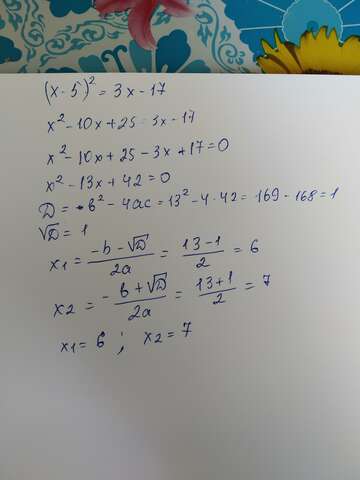 (x - 5)² = 3x - 17
x² - 10x + 25 = 3x - 17
x² - 10x + 25 - 3x + 17 = 0
x² - 13x + 42 = 0
D = b² - 4ac = 13² - 4 · 42 = 169 - 168 = 1
√D = 1
x₁ = (-b - √D)/2a = (13 - 1)/2 = 6
x₂ = (-b + √D)/2a = (13 + 1)/2 = 7
x₁ = 6 ; x₂ = 7